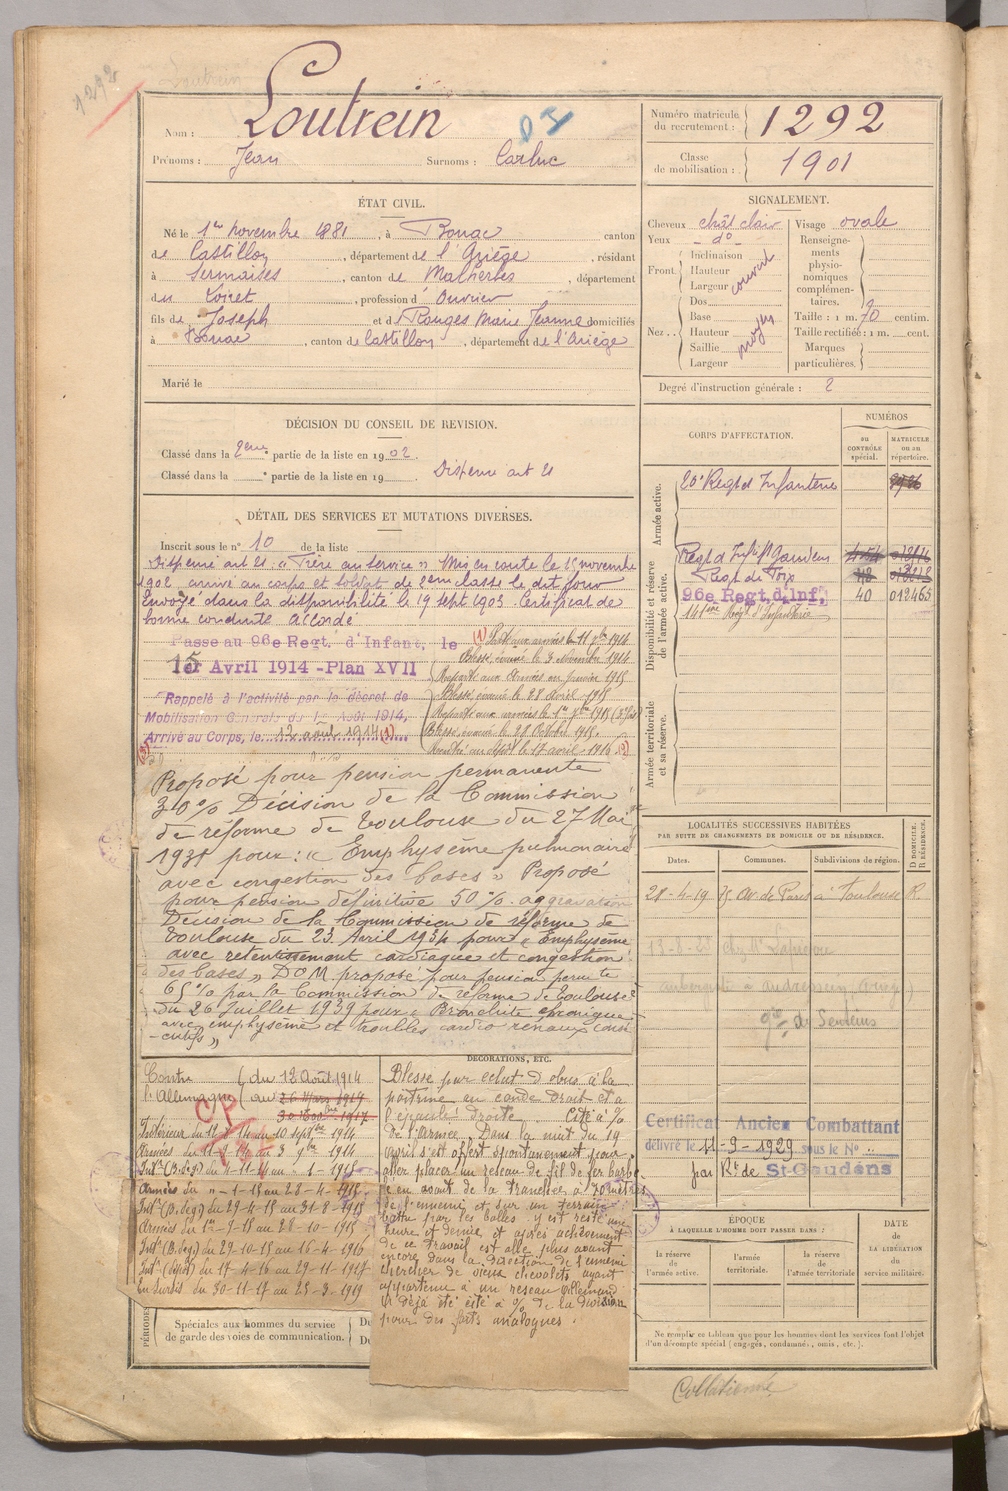 1292
Nom : Loutrein
Prénoms : Jean Surnoms : Carluc
Numéro matricule du recrutement : 1292
Classe de mobilisation : 1901
ÉTAT CIVIL.
Né le 1er novembre 1881, à Bonac canton
de Castillon, département de l'Ariège, résidant
à Sermaises, canton de Malherbes département
du Loiret, profession d' Ouvrier
fils de Joseph et de Rouges Marie Jeanne domiciliés
à Bonac, canton de Castillon, département de l'Ariège
Marié le
SIGNALEMENT.
Cheveux chât clair
Yeux - do -
Front : Inclinaison
Hauteur couvert
Largeur
Nez : Dos
Base
Hauteur moyen
Saillie
Largeur
Visage ovale
Renseignements physionomiques complémentaires.
Taille : 1 m. 70 centim.
Taille rectifiée : 1 m. cent.
Marques particulières.
Degré d'instruction générale : 2
DÉCISION DU CONSEIL DE REVISION.
Classé dans la 2eme partie de la liste en 1902.
Classé dans la e partie de la liste en 19 . Dispensé art 21
DÉTAIL DES SERVICES ET MUTATIONS DIVERSES.
Inscrit sous le n° 10 de la liste
Dispensé art 21. « Frère au service » Mis en route le 15 novembre
1902 arrivé au corps et soldat de 2eme classe le dit jour
Envoyé dans la disponibilité le 19 sept 1903. Certificat de
bonne conduite accordé
Passe au 96e Regt. d'Infant. le
1er Avril 1914 - Plan XVII
Rappelé à l'activité par le décret de
Mobilisation Générale du 1er Août 1914,
Arrivé au Corps, le 12 août 1914 (1)
(1) Parti aux armées le 11 7bre 1914
Blessé, évacué le 3 Novembre 1914
Reparti aux armées en janvier 1915
Blessé évacué le 28 Avril 1915
Reparti aux armées le 1er 7bre 1915
Blessé, évacué le 28 Octobre 1915.
Rentré au dépôt le 17 avril 1916 (2)
Proposé pour pension permanente
30% Décision de la Commission
de réforme de Toulouse du 27 Mai
pour : « Emphysème pulmonaire
avec congestion des bases » Proposé
pour pension définitive 50% aggravation
Décision de la Commission de réforme de
Toulouse du 23 Avril 1934 pour « Emphysème
avec retentissement cardiaque et congestion
des bases » DOM. proposé pour pension permte
65% par la Commission de réforme de Toulouse
du 26 Juillet 1939 pour « Bronchite chronique
avec emphysème et troubles cardio rénaux consé
-cutifs »
CORPS D'AFFECTATION.
NUMÉROS
au CONTRÔLE spécial.
MATRICULE ou au répertoire.
Armée active.
20e Regt d'Infanterie
Disponibilité et réserve de l'armée active.
Regt d'Infie St Gaudens
Regt de Foix
96e Regt. d'Inf. 40 012465
141eme Régt d'Infanterie
Armée territoriale et sa réserve.
LOCALITÉS SUCCESSIVES HABITÉES
PAR SUITE DE CHANGEMENTS DE DOMICILE OU DE RÉSIDENCE.
Dates. Communes. Subdivisions de région. D DOMICILE. R RÉSIDENCE.
28-4-19 75 av. de Paris à Toulouse R.
13-8-23 chez Mr
aubergiste à
de Sentein
Certificat Ancien Combattant
délivré le 11-9-1929 sous le N°
par Rt de St-Gaudens
Contre l'Allemagne
du 12 Août 1914
Intérieur du 12-8-14 au 10 septbre 1914
Armées du 11-9-14 au 3 9bre 1914
Intr (B. deg.) du 4-11-14 au " -1-1915
Armées du " -1-15 au 28-4-1915
Intr (B. deg.) du 29-4-15 au 31-8-1915
Armées du 1er-9-15 au 28-10-1915
Intr (B. deg.) du 29-10-15 au 16-4-1916
Intr (dépôt) du 17-4-16 au 29-11-1917
En sursis du 30-11-17 au 25-3-1919
CP
DÉCORATIONS, ETC.
Blessé par éclat d'obus à la
poitrine au coude droit et à
l'épaule droite. Cité à %
de l'Armée. Dans la nuit du 19
avril s'est offert spontanément pour
aller placer un réseau de fil de fer barbe
lé en avant de la tranchée à 70 mètres
de l'ennemi et sur un terrain
battu par les balles. y est resté une
heure et demie et après achèvement
de ce travail est allé plus avant
encore dans la direction de l'ennemi
chercher de vieux chevalets ayant
appartenu à un réseau Allemand
A déjà été cité à % de la Division
pour des faits analogues.
PÉRIODES
Spéciales aux hommes du service
de garde des voies de communication.
ÉPOQUE
À LAQUELLE L'HOMME DOIT PASSER DANS :
la réserve de l'armée active.
l'armée territoriale.
la réserve de l'armée territoriale
DATE DE LA LIBÉRATION du service militaire.
Ne remplir ce tableau que pour les hommes dont les services font l'objet
d'un décompte spécial (engagés, condamnés, omis, etc.).
Collationné